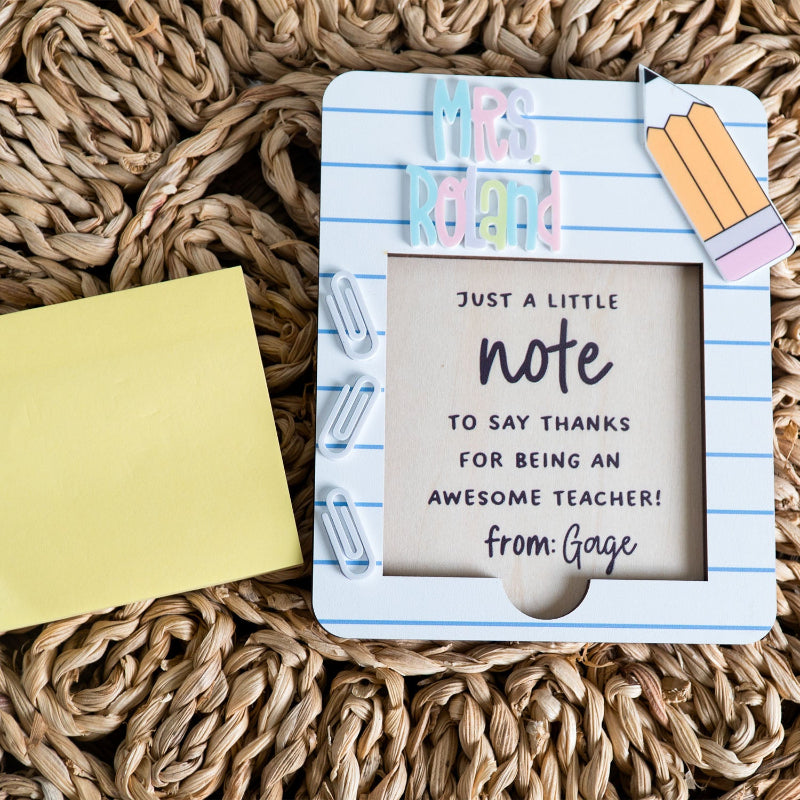 MRS.
Roland
JUST A LITTLE
note
TO SAY THANKS
FOR BEING AN
AWESOME TEACHER!
from: Gage